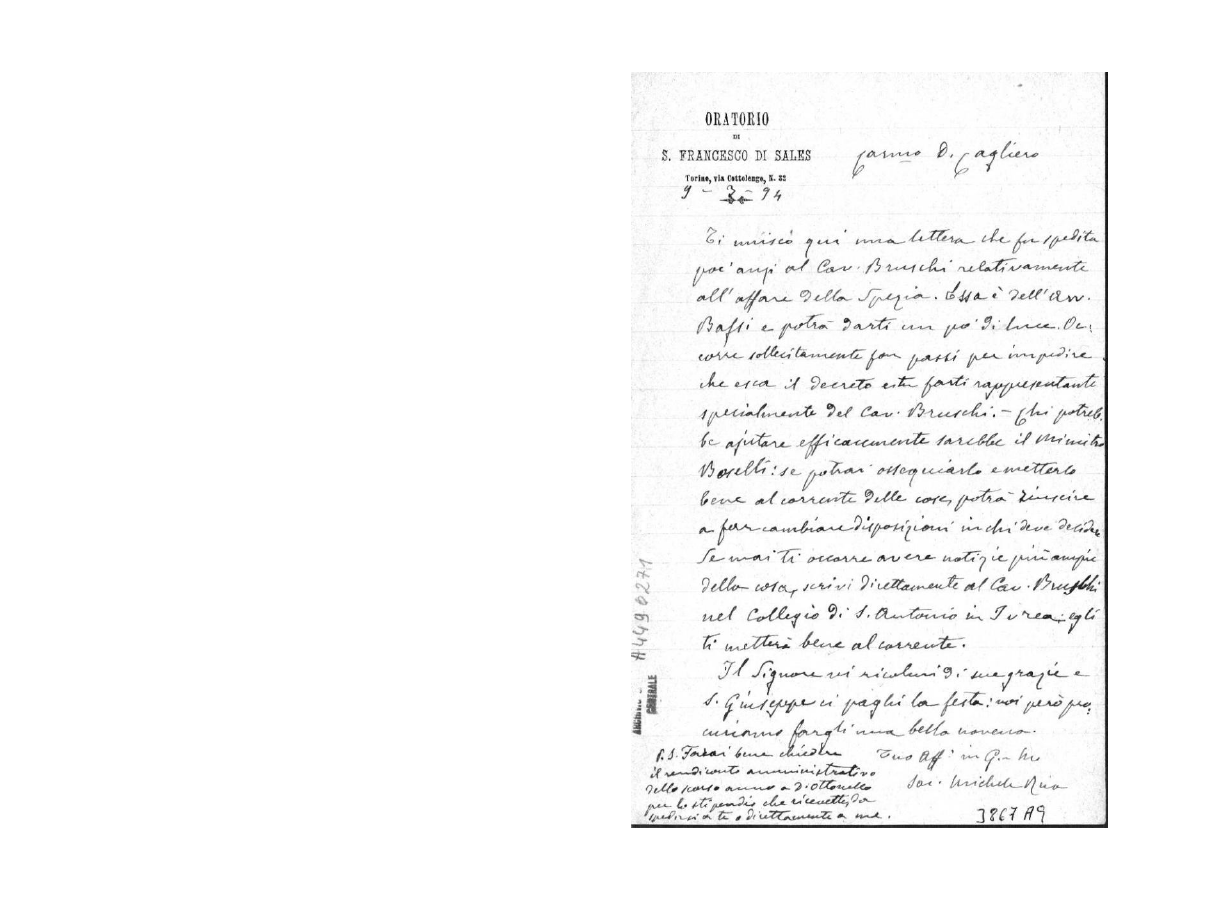 ORATORIO
DI
S. FRANCESCO DI SALES
Torino, via Cottolengo, N. 32
9 - 3 - 94
Carmo D. Cagliero
Ti unisco qui una lettera che fu spedita
poc'anzi al Cav. Bruschi relativamente
all'affare della Spezia. Essa è dell'Avv.
Bassi e potrà darti un po' di luce. Oc:
corre sollecitamente far passi per impedire
che esca il decreto farti rappresentante
specialmente del Cav. Bruschi. - Chi potreb.
be ajutare efficacemente sarebbe il Ministro
Boselli: se potrai ossequiarlo e metterlo
bene al corrente delle cose, potrà riuscire
a far cambiare disposizioni in chi deve decidere
Se mai ti occorre avere notizie più ampie
della cosa, scrivi direttamente al Cav. Bruschi
nel Collegio di S. Antonio in Ivrea; egli
ti metterà bene al corrente.
Il Signore vi ricolmi di sue grazie e
S. Giuseppe ci paghi la festa: noi però pro:
curiamo fargli una bella novena.
Tuo Aff in G. M
Sac. Michele Rua
P. S. Farai bene chiedere
il rendiconto amministrativo
dello scorso anno a D. Ottonello
per lo stipendio che ricevette, da
spedirsi a te o direttamente a me.
3867 A9
A4490271
ARCHIVIO
CENTRALE